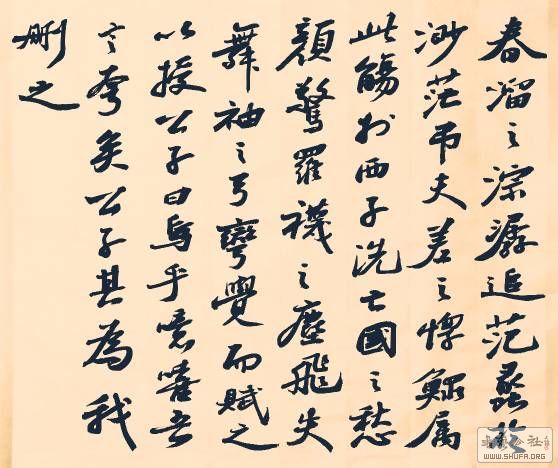 春溜之淙潺追范蠡於
渺茫吊夫差之惸鰥属
此觴於西子洗亡國之愁
顏驚羅襪之塵飛失
舞袖之弓彎覺而賦之
以授公子曰烏乎噫嘻吾
言夸矣公子其為我
刪之
WWW.SHUFA.ORG